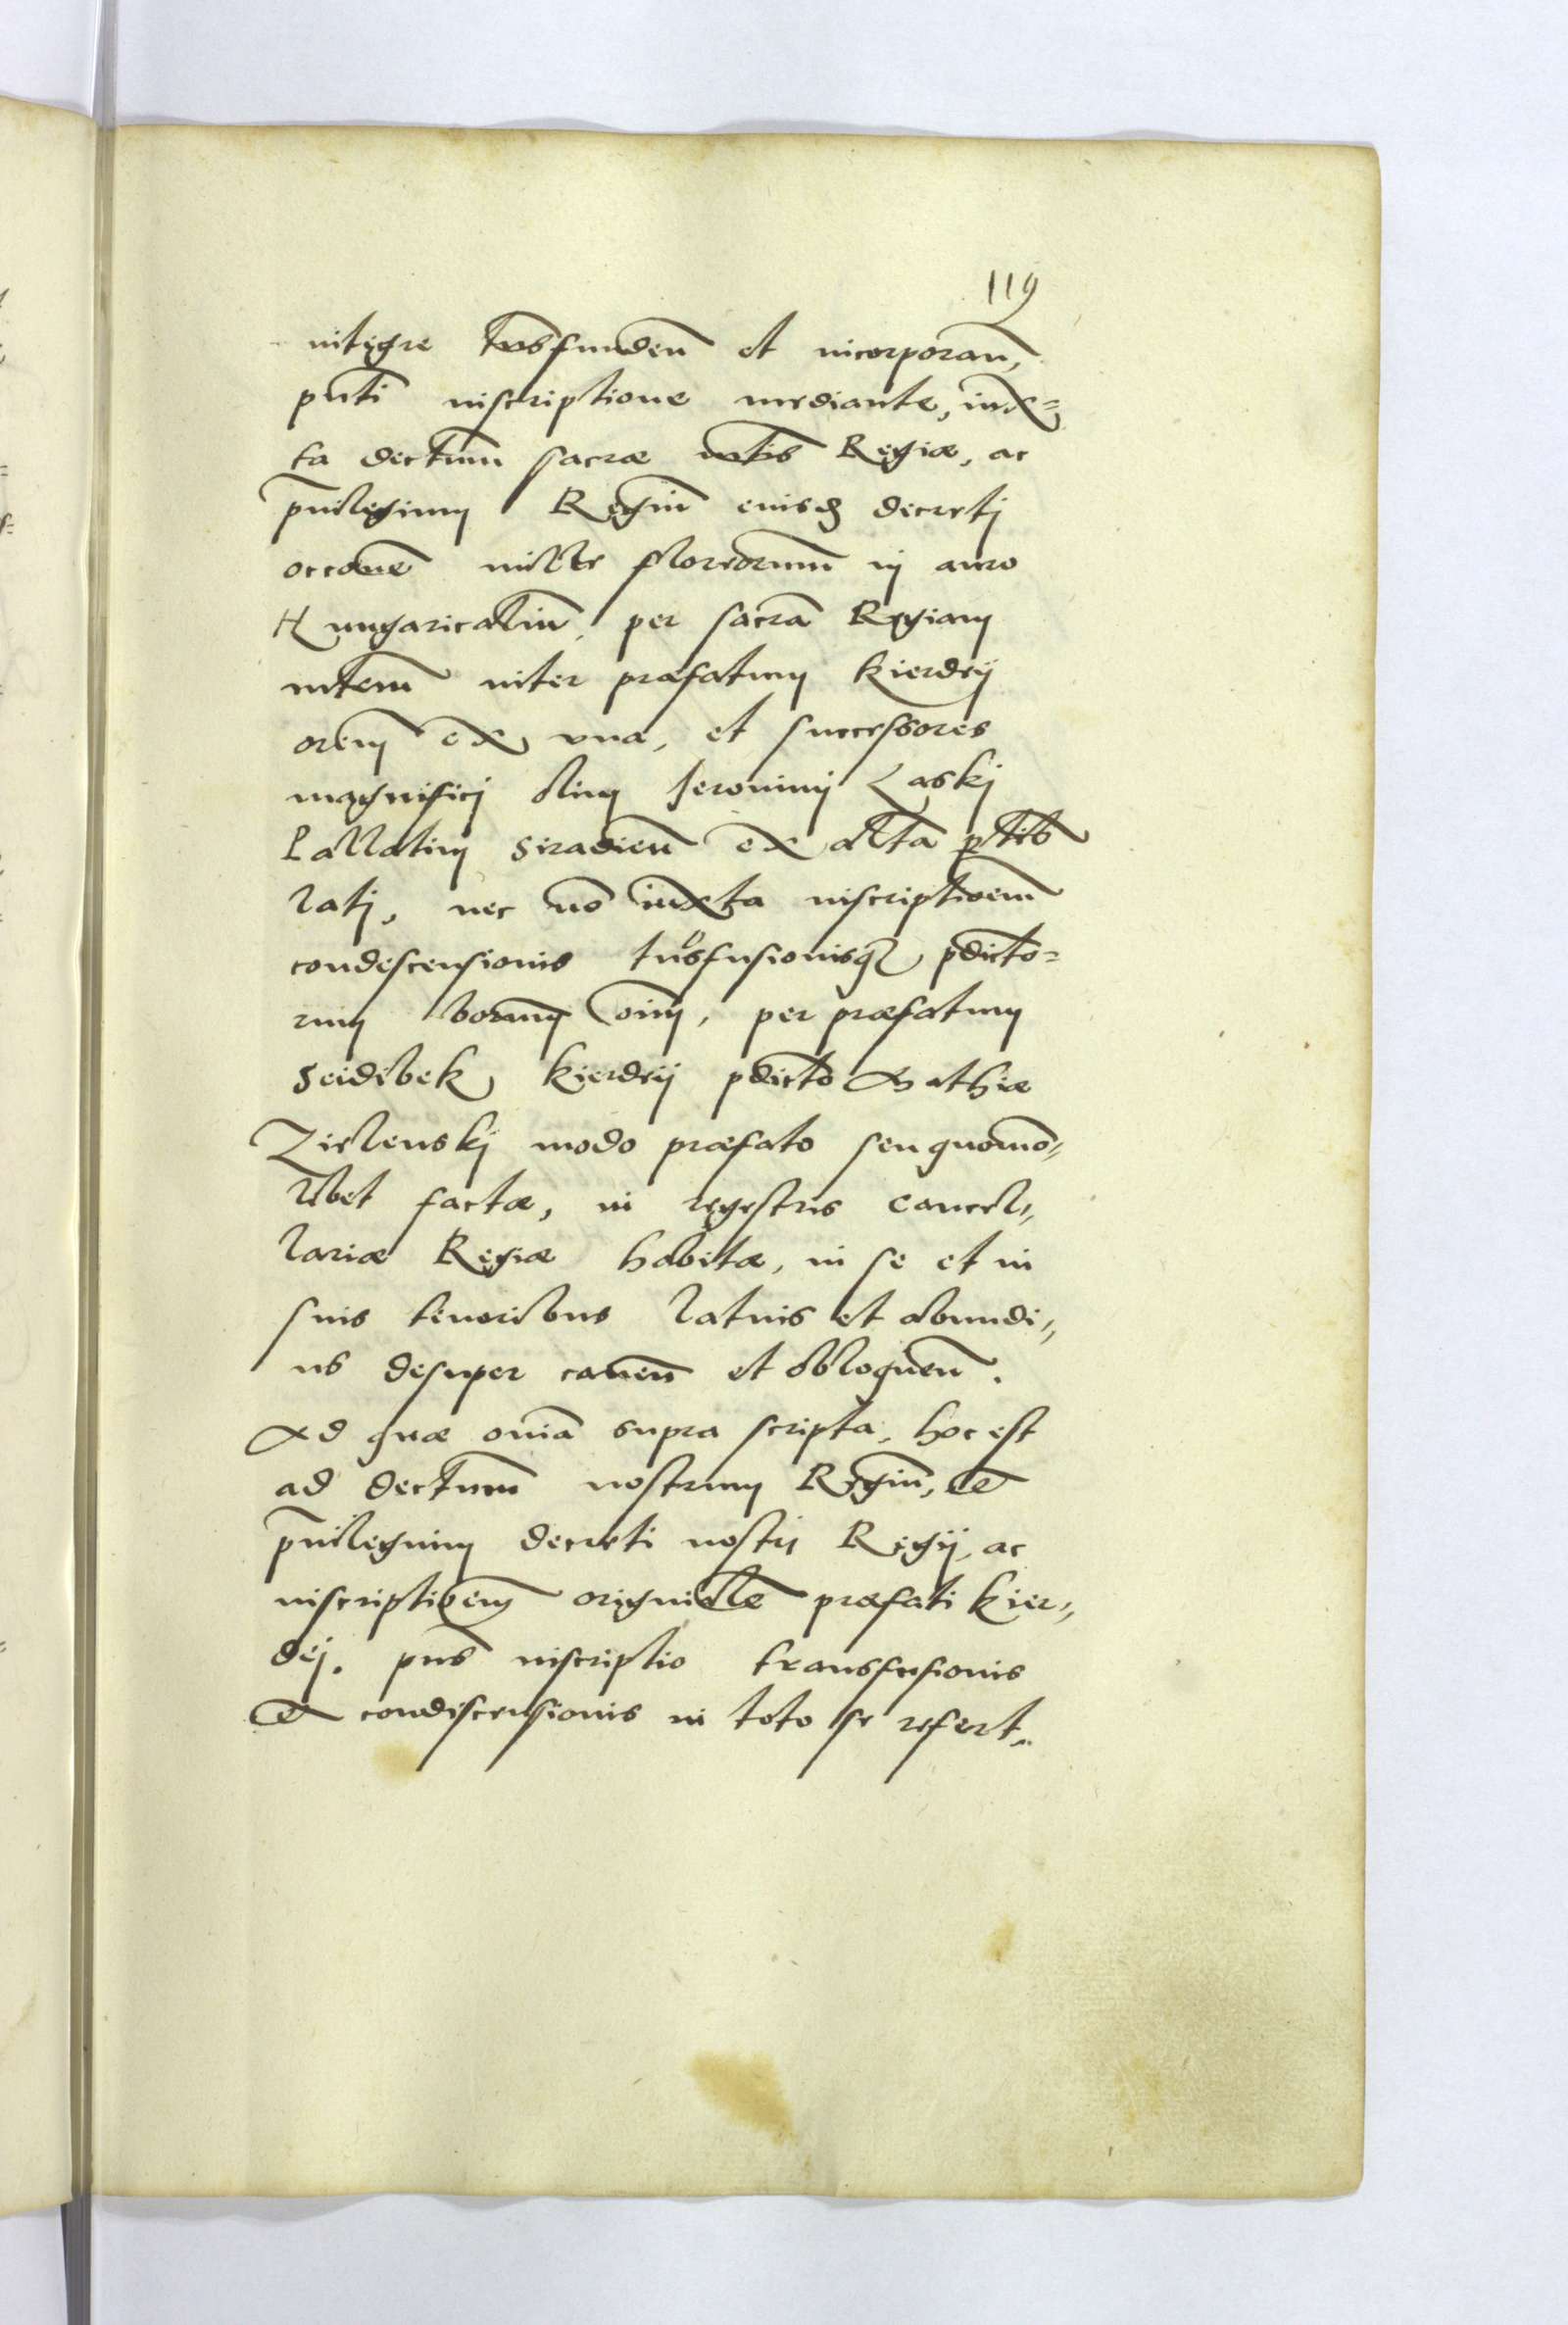 119
integre trāsfunden̄ et incorporan̄,
pn̄ti inscriptione mediante, iux=
ta dectum̄ sacræ mtis Regiæ, ac
priuilegium Regiū eiusd decreti
occōne mille florenorum in auro
Hungaricaliū, per sacrā Regiam
mtem inter præfatum Kierdeij
orem ex una, et successores
magnifici olim Ieronimi Laskj
Pallatini Siradien̄ ex altā ptib
latj, nec nō iuxta inscriptioem̄
condescensionis trāsfusionisq pdicto=
rum bonorum oīm, per præfatum
Seidibek Kierdeij pdicto Mathiæ
Zielenskj modo præfato seu quomō,,
libet factæ, in regestris Cancel,,
lariæ Regiæ habitæ, in se et in
suis tenoribus latius et abundi,,
us desuper caven̄ et obloquen̄.
Ad quæ oniā supra scripta, hoc est
ad dectum̄ nostrum Regiū, et
priuilegium decreti nostri Regij, ac
inscriptioem̄ originalē præfati Kier,,
dej. pn̄s inscriptio transfusionis
et condiscensionis in toto se refert.